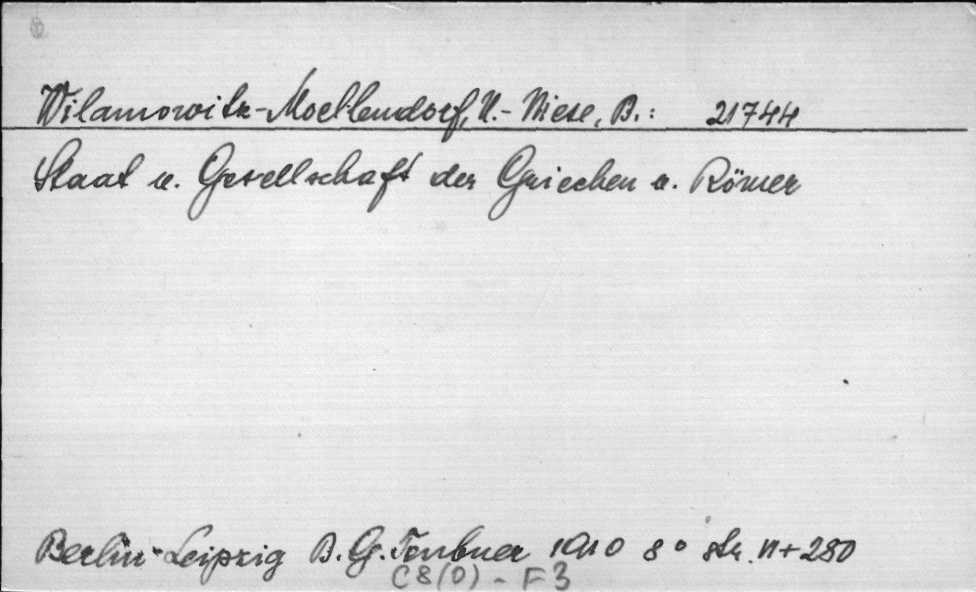 Wilamowitz-Moellendorf, U.- Niese, B.: 21744
Staat u. Gesellschaft der Griechen u. Römer
Berlin-Leipzig B. G. Teubner 1910 8° str. VI+280
C8(0) - F3